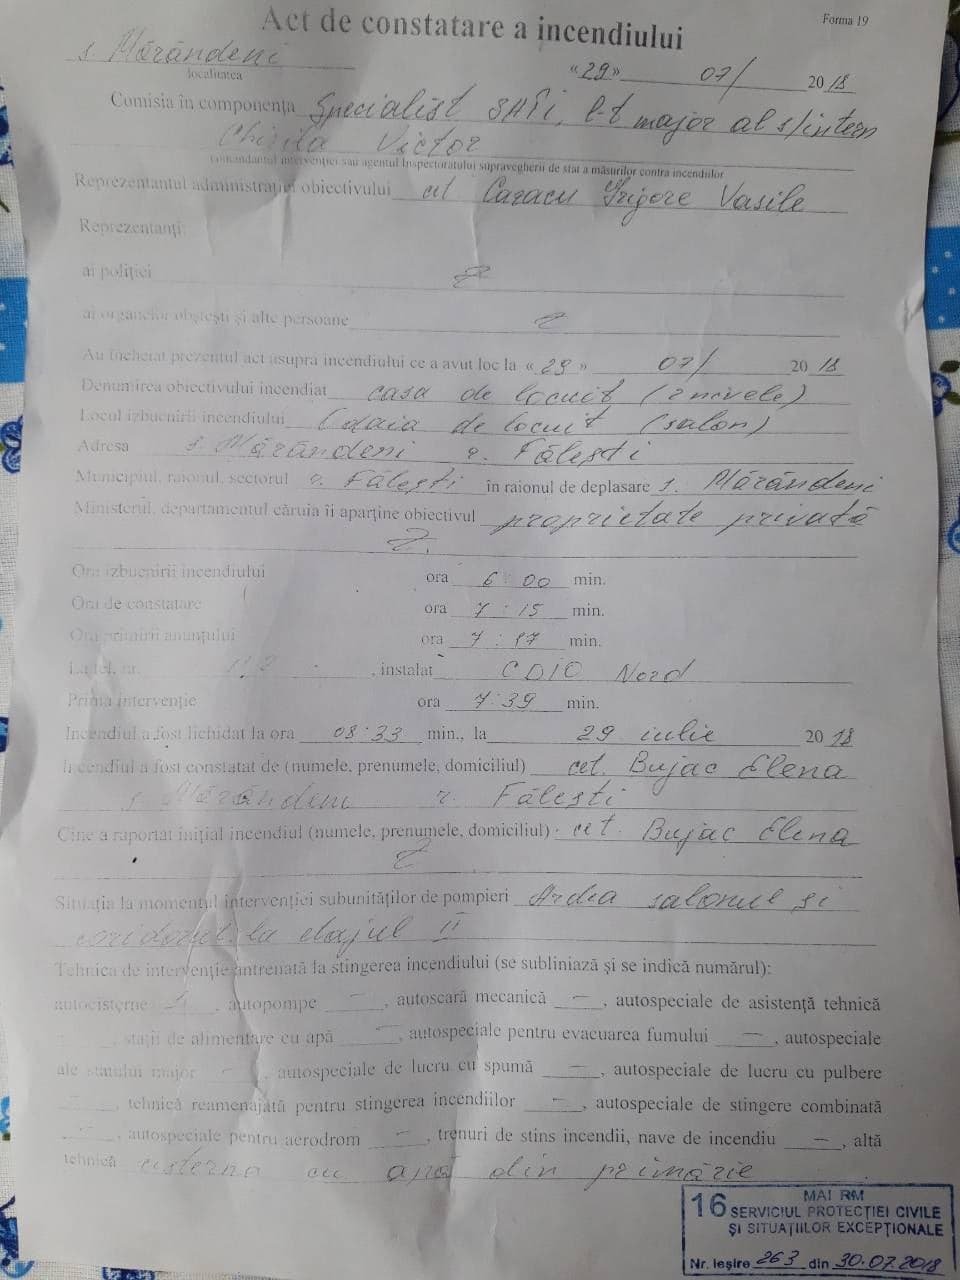 Act de constatare a incendiului
Forma 19
s. Mărăndeni
localitatea
«29» 07/ 2018
Comisia în componența Specialist SATI, l-t major al s/intern
Chirila Victor
comandantul intervenției sau agentul Inspectoratului supravegherii de stat a măsurilor contra incendiilor
Reprezentantul administrației obiectivului cet Cazacu Grigore Vasile
Reprezentanți:
ai poliției Z
ai organelor obștești și alte persoane Z
Au încheiat prezentul act asupra incendiului ce a avut loc la «29» 07/ 2018
Denumirea obiectivului incendiat casa de locuit (2 nivele)
Locul izbucnirii incendiului Odaia de locuit (salon)
Adresa s. Mărăndeni r. Fălești
Municipiul, raionul, sectorul r. Fălești în raionul de deplasare s. Mărăndeni
Ministerul, departamentul căruia îi aparține obiectivul proprietate privată
Z
Ora izbucnirii incendiului ora 6:00 min.
Ora de constatare ora 7:15 min.
Ora primirii anunțului ora 7:17 min.
La tel. nr. 112, instalat CDIO Nord
Prima intervenție ora 7:39 min.
Incendiul a fost lichidat la ora 08:33 min., la 29 iulie 2018
Incendiul a fost constatat de (numele, prenumele, domiciliul) cet. Bujac Elena
s. Mărăndeni r. Fălești
Cine a raportat inițial incendiul (numele, prenumele, domiciliul) cet. Bujac Elena
Z
Situația la momentul intervenției subunităților de pompieri Ardea salonul și
coridorul la etajul II
Tehnica de intervenție antrenată la stingerea incendiului (se subliniază și se indică numărul):
autocisterne -1, autopompe —, autoscară mecanică —, autospeciale de asistență tehnică
, stații de alimentare cu apă —, autospeciale pentru evacuarea fumului —, autospeciale
ale statului major —, autospeciale de lucru cu spumă —, autospeciale de lucru cu pulbere
—, tehnică reamenajată pentru stingerea incendiilor —, autospeciale de stingere combinată
—, autospeciale pentru aerodrom —, trenuri de stins incendii, nave de incendiu —, altă
tehnică cisterna cu apă din primărie
MAI RM
16 SERVICIUL PROTECȚIEI CIVILE
ȘI SITUAȚIILOR EXCEPȚIONALE
Nr. Ieșire 263 din 30.07.2018